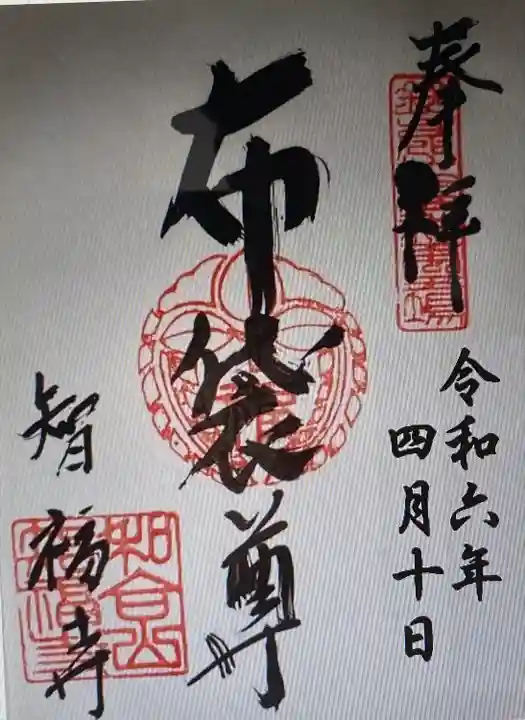 奉拝
令和六年
四月十日
布袋尊
智福寺